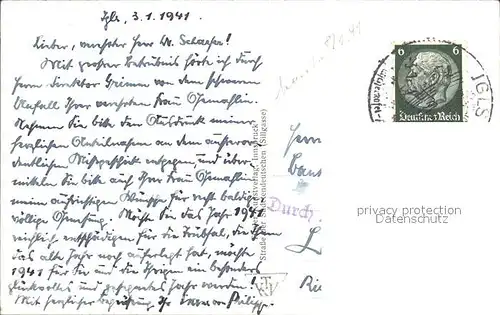 Igls, 3.1.1941.
Lieber, verehrter Herr Dr. Schaefer!
Mit großer Betrübnis hörte ich durch
Herrn Direktor Griemen von dem schweren
Unfall Ihrer verehrten Frau Gemahlin.
Nehmen Sie bitte den Ausdruck meiner
herzlichen Anteilnahme an dem außeror-
dentlichen Missgeschick entgegen, und über-
mitteln Sie bitte auch Ihrer Frau Gemahlin
meine aufrichtigen Wünsche für recht baldige
völlige Genesung. Möchte Sie das Jahr 1941
reichlich entschädigen für die Trübsal, die Ihnen
das alte Jahr noch auferlegt hat, möchte
1941 für Sie und die Ihrigen ein besonders
glückvolles und gesegnetes Jahr werden!
Mit herzlicher Begrüßung Ihr Philipp.
6 6
Deutsches Reich
IGLS
Innsbruck
Straße der Sudetendeutschen (Sillgasse)
Durch
Herrn
privacy protection
Datenschutz